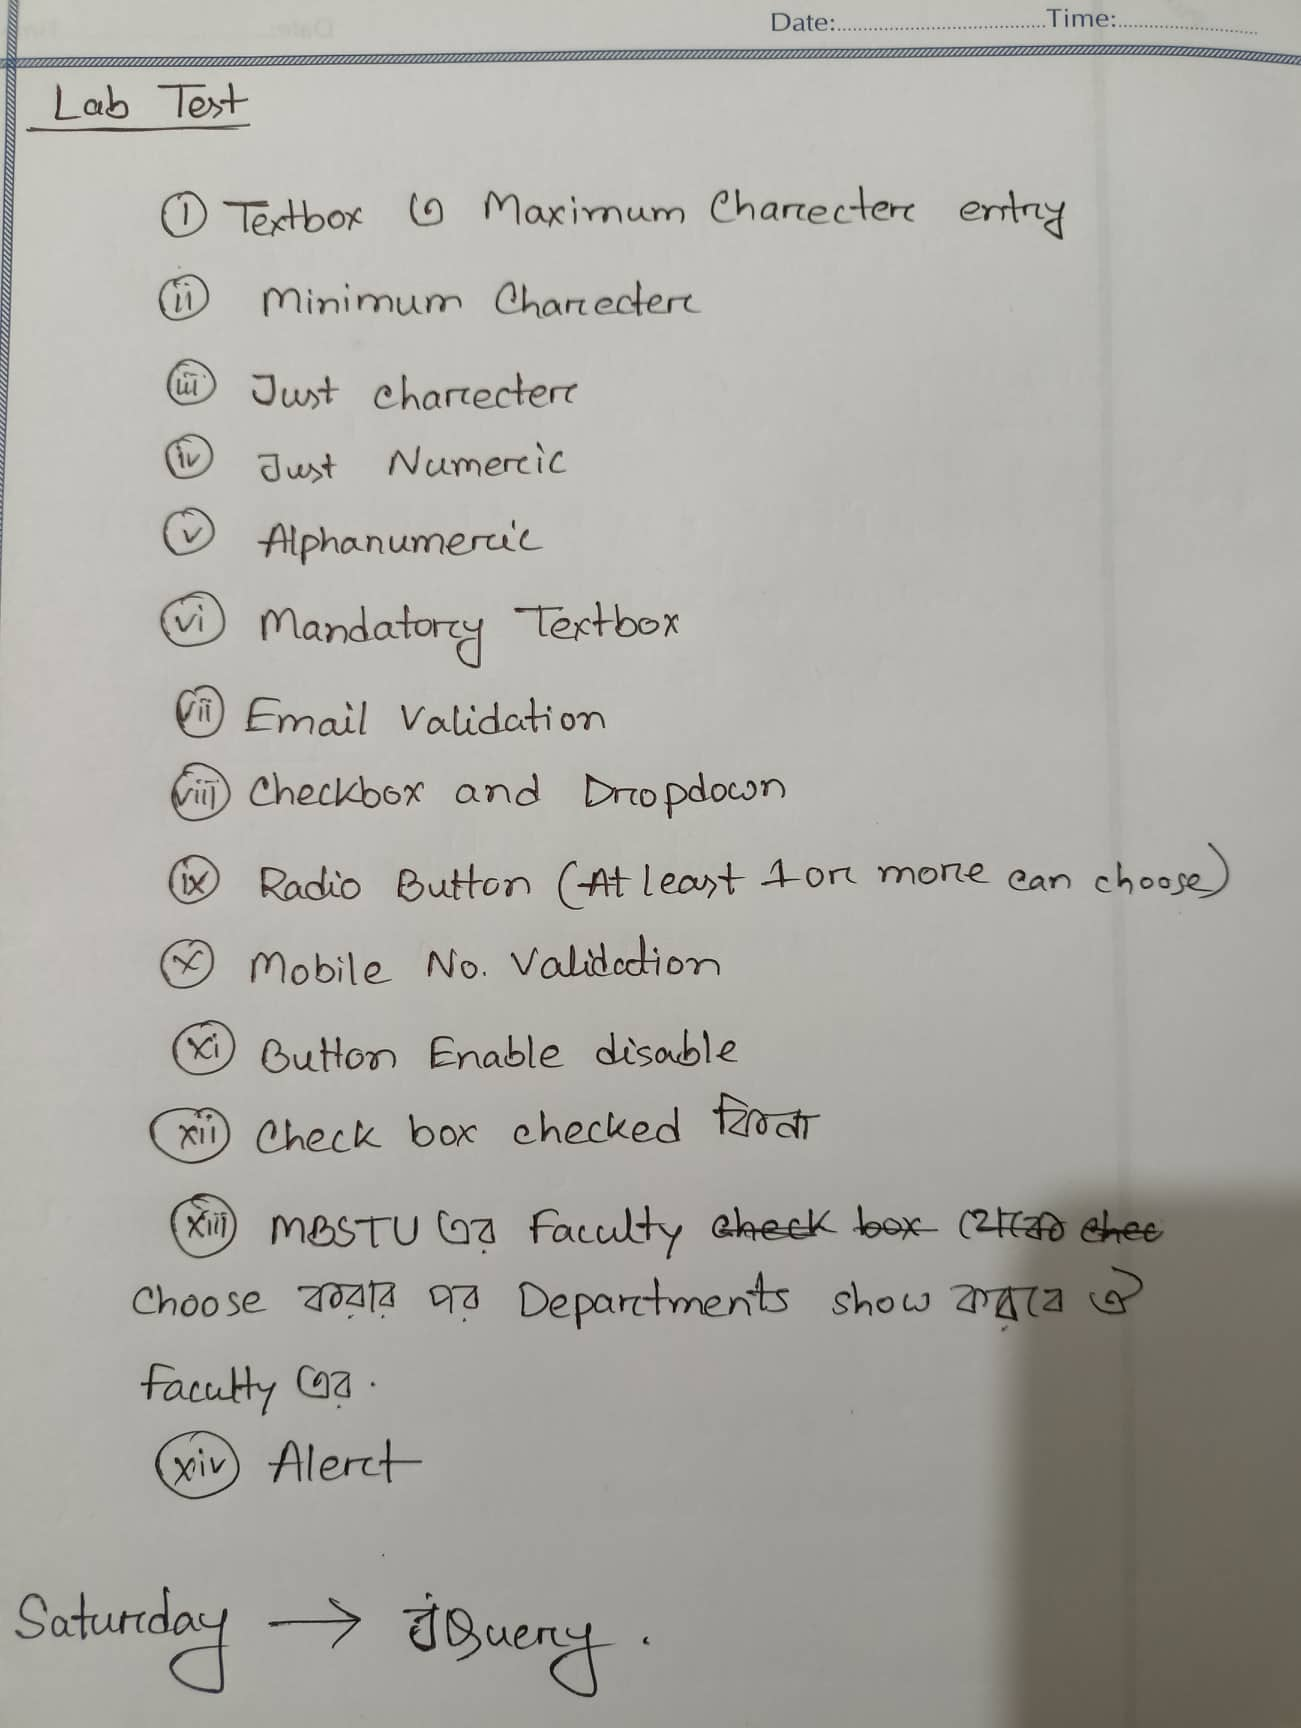 Date:..............................Time:..............................
Lab Test
(i) Textbox এ Maximum Charecter entry
(ii) Minimum Charecter
(iii) Just charecter
(iv) Just Numeric
(v) Alphanumeric
(vi) Mandatory Textbox
(vii) Email Validation
(viii) Checkbox and Dropdown
(ix) Radio Button (At least 1 or more can choose)
(x) Mobile No. Validation
(xi) Button Enable disable
(xii) Check box checked কিনা
(xiii) MBSTU এর Faculty check box থেকে chec
Choose করার পর Departments show করবে ঐ
faculty এর.
(xiv) Alert
Saturday → jQuery.